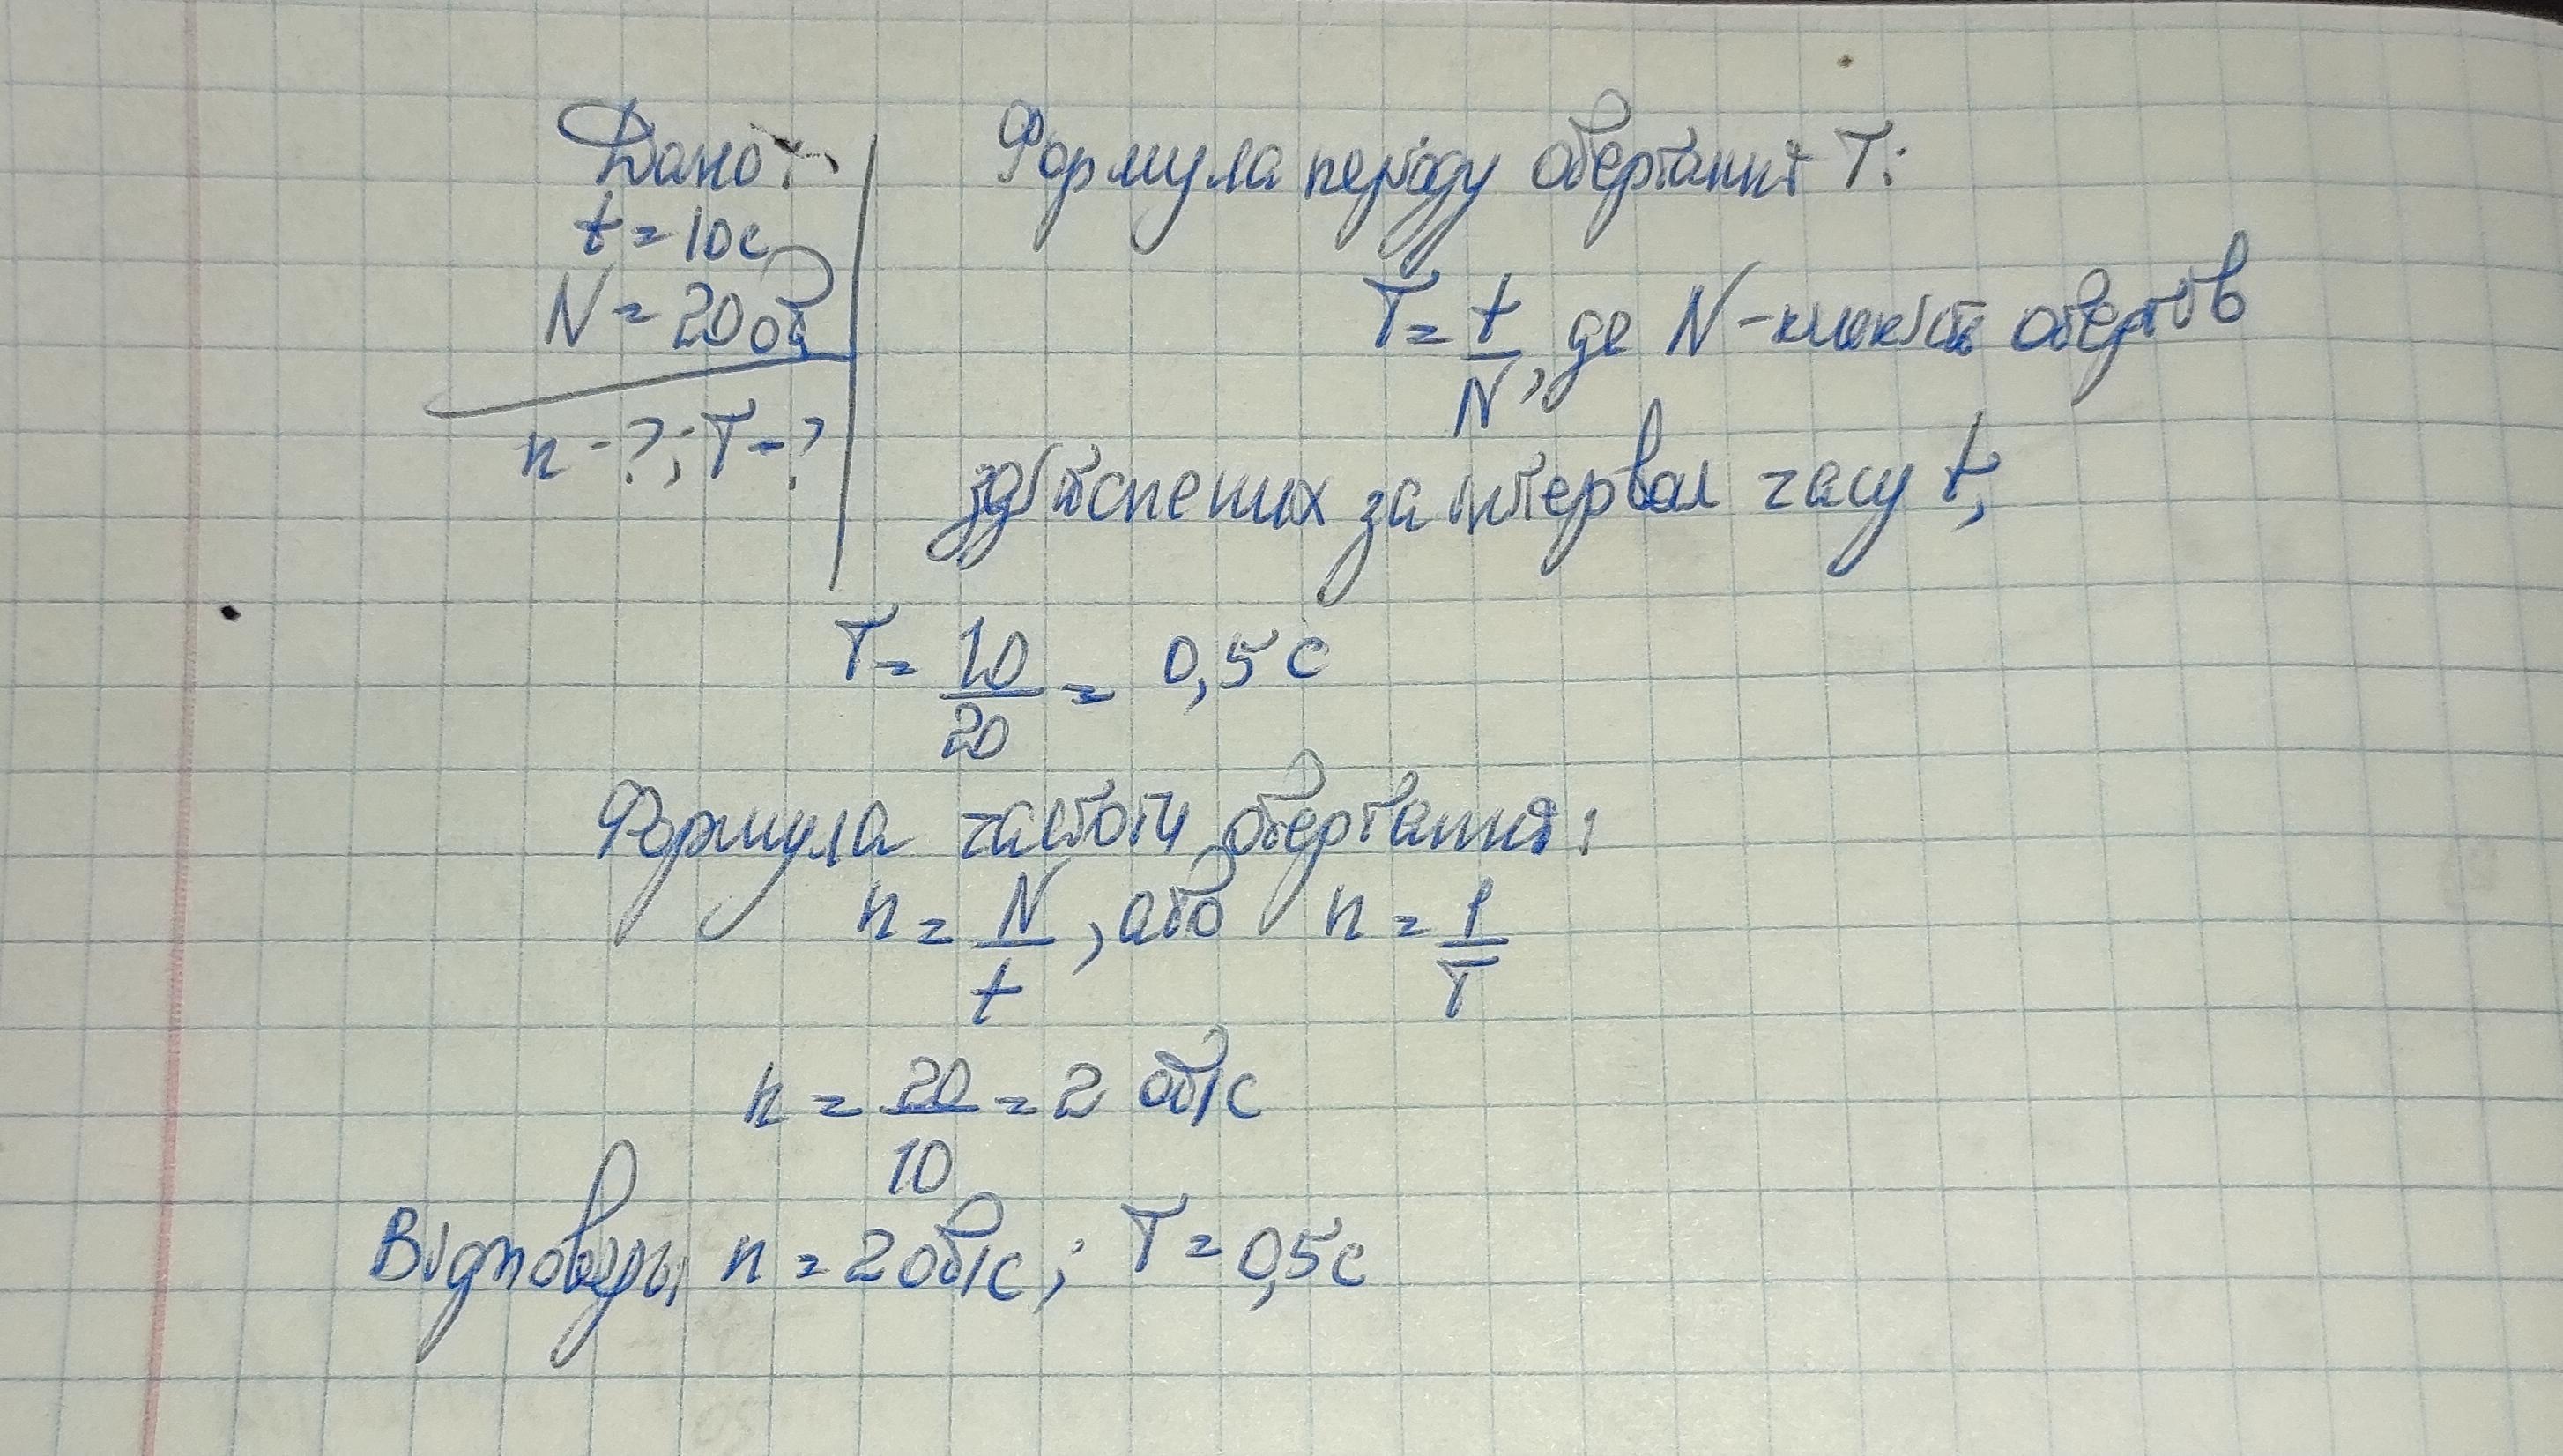 Дано:
t = 10с
N = 20 об
n - ?; T - ?
Формула періоду обертання T:
T = t/N, де N - кількість обертів
здійснених за інтервал часу t,
T = 10/20 = 0,5 с
Формула частоти обертання:
n = N/t, або n = 1/T
n = 20/10 = 2 об/с
Відповідь: n = 2 об/с; T = 0,5с